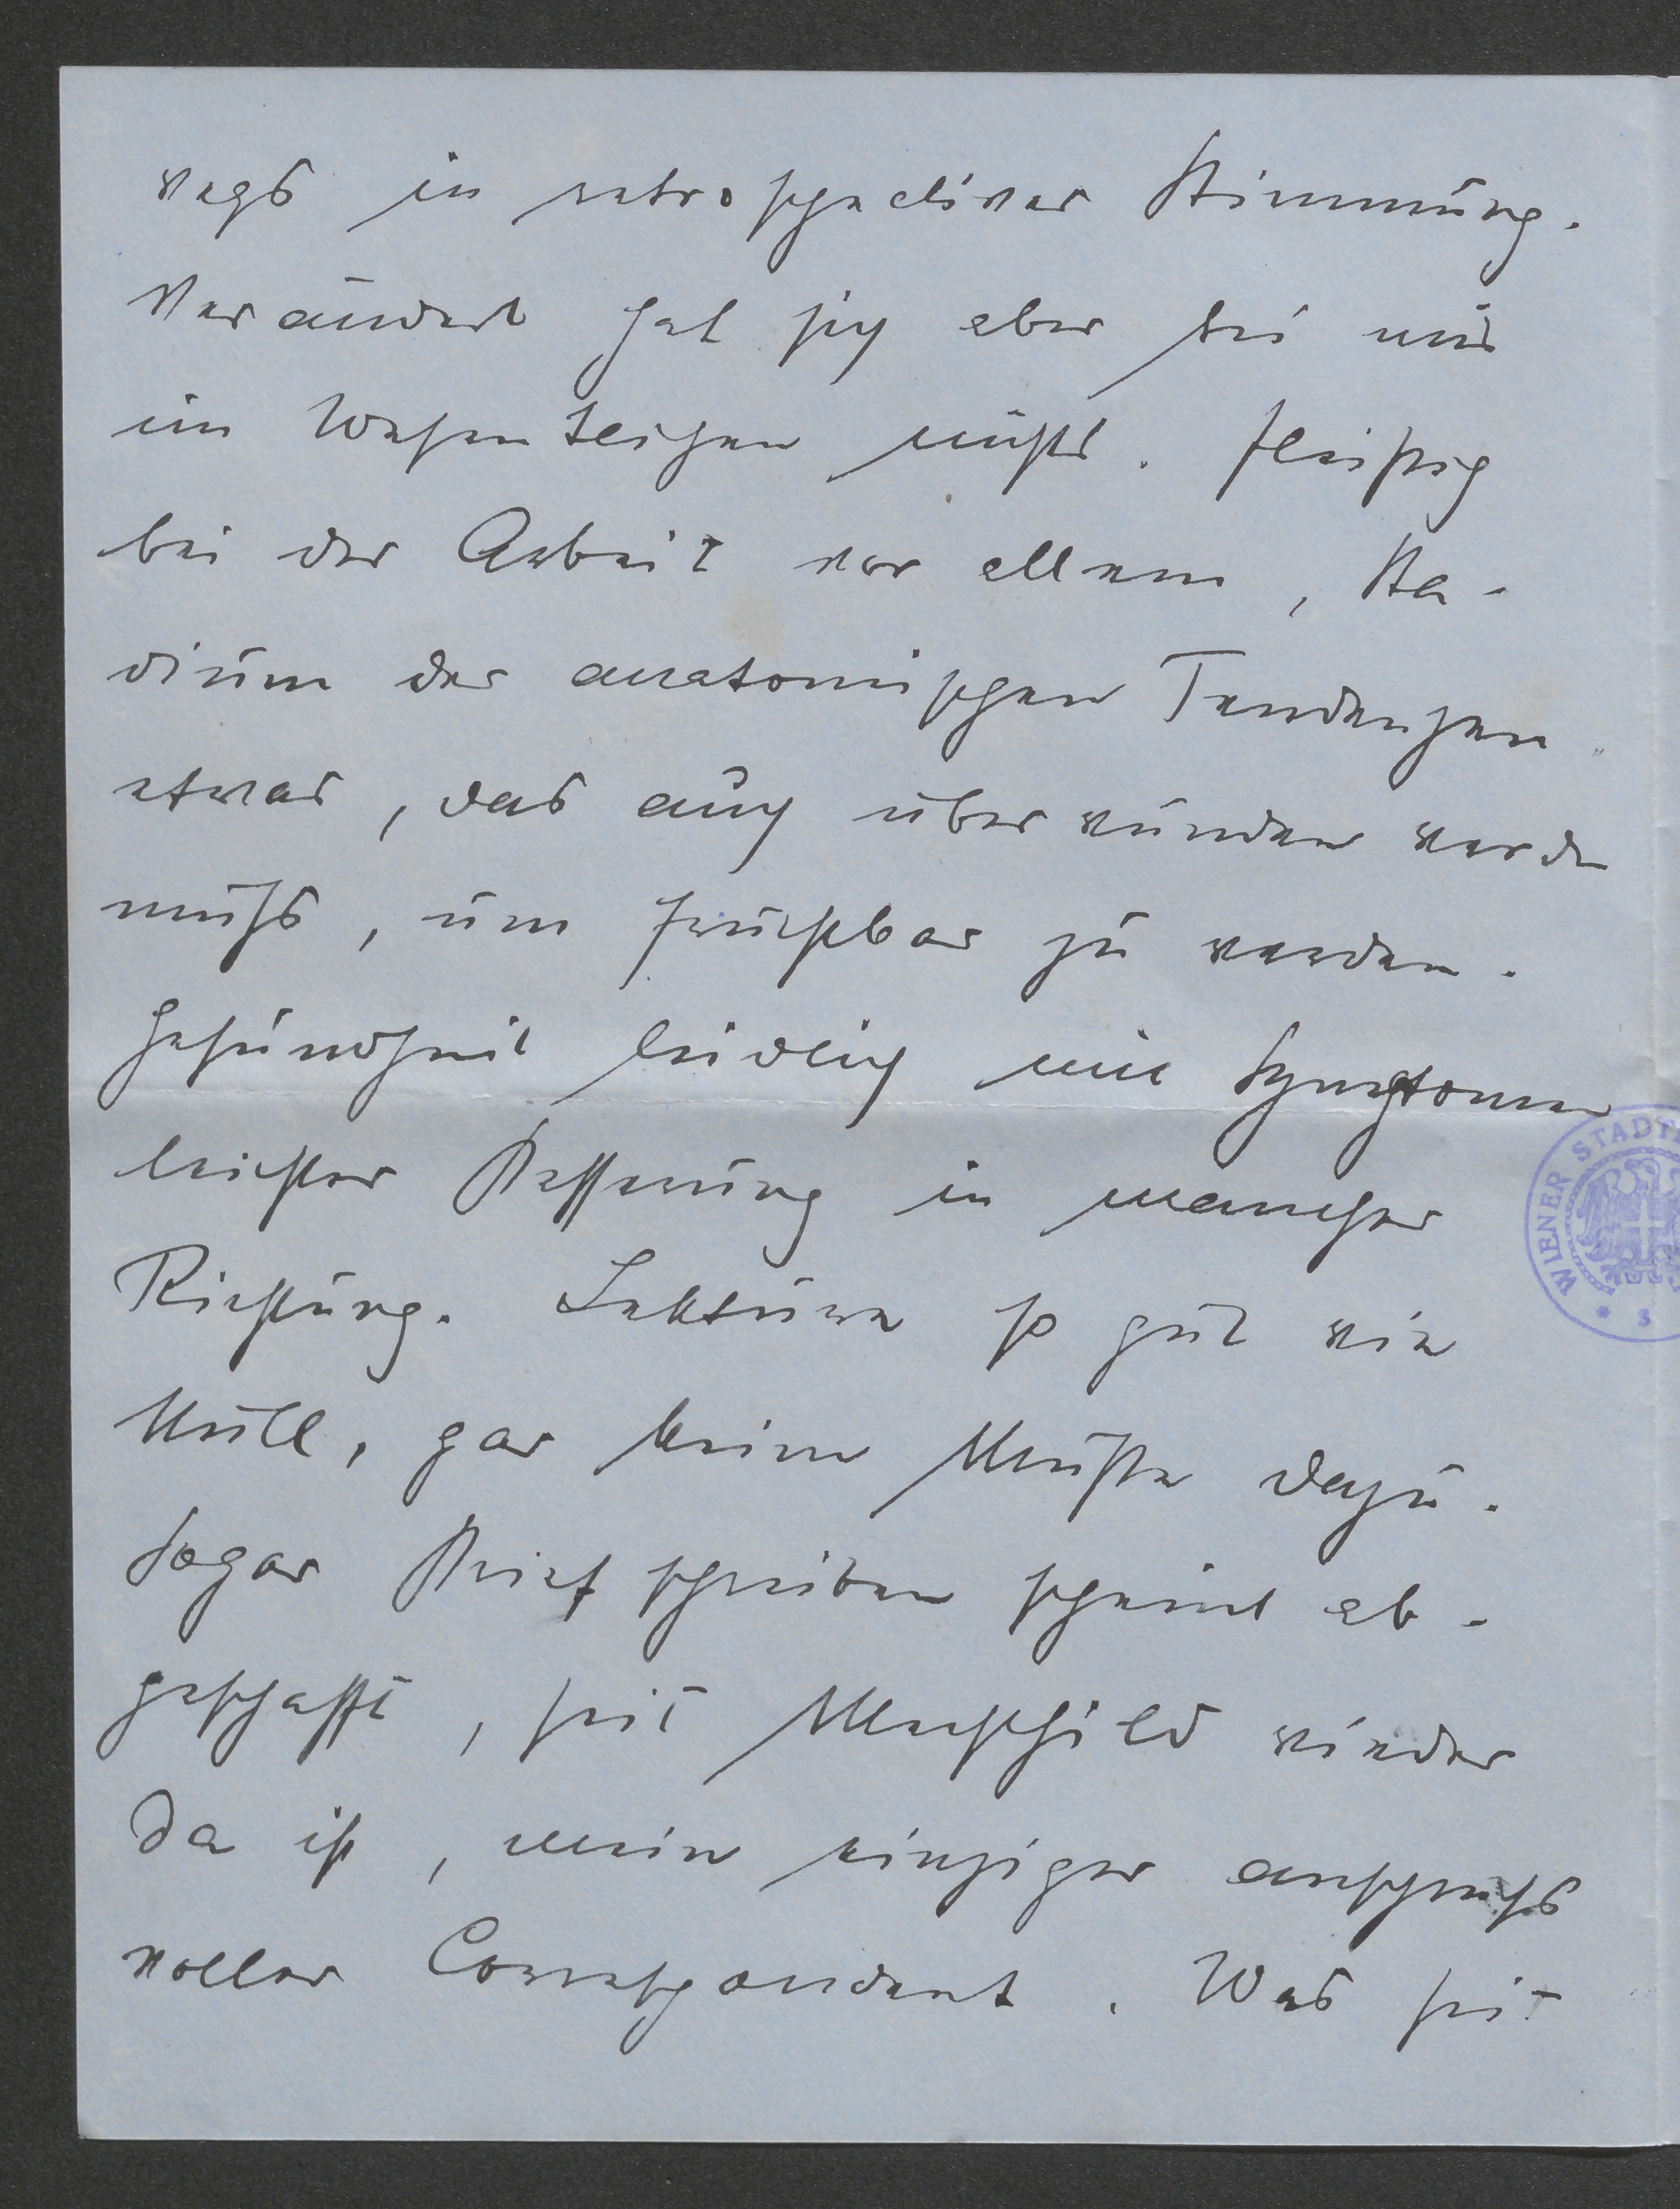 wegs in retrospectiver Stimmung.
Verändert hat sich aber bei mir
im Wesentlichen nichts. Fleißig
bei der Arbeit vor allem, Sta-
dium der anatomischen Tendenzen
etwas, das auch überwunden werden
muß, um fruchtbar zu werden.
Gesundheit leidlich mit Symptomen
leichter Besserung in mancher
Richtung. Lektüre so gut wie
Null, gar keine Muße dazu.
Sogar Briefschreiben scheint ab-
geschafft, seit
wieder
da ist, mein einziger anspruchs
voller Correspondent. Was seit
WIENER STADT
* 3